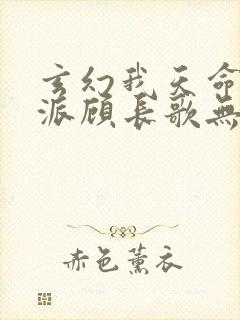 玄幻我天命
派顾长歌無
赤色薰衣